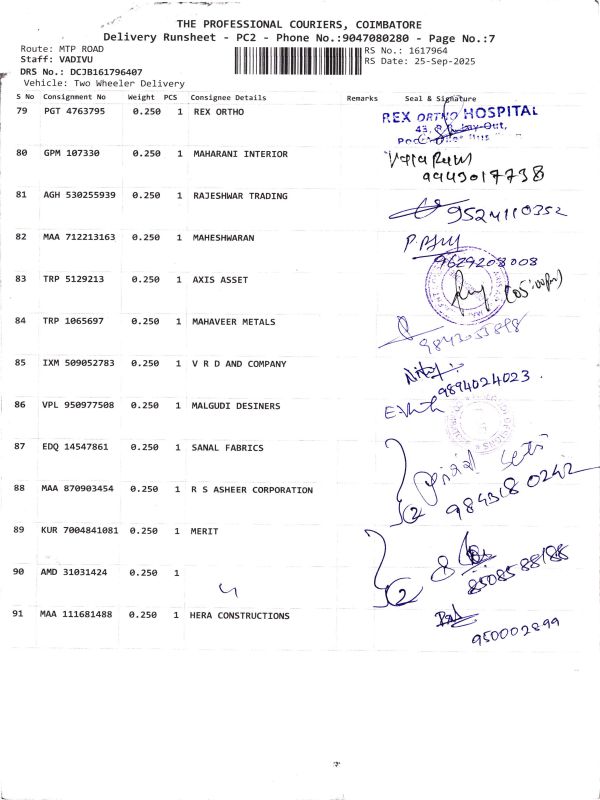 THE PROFESSIONAL COURIERS, COIMBATORE
Delivery Runsheet - PC2 - Phone No.:9047080280 - Page No.:7
Route: MTP ROAD
RS No.: 1617964
Staff: VADIVU
RS Date: 25-Sep-2025
DRS No.: DCJB161796407
Vehicle: Two Wheeler Delivery
S No Consignment No Weight PCS Consignee Details Remarks Seal & Signature
79 PGT 4763795 0.250 1 REX ORTHO
REX ORTHO HOSPITAL
80 GPM 107330 0.250 1 MAHARANI INTERIOR
9943017738
81 AGH 530255939 0.250 1 RAJESHWAR TRADING
9524110352
82 MAA 712213163 0.250 1 MAHESHWARAN
9629208008
83 TRP 5129213 0.250 1 AXIS ASSET
84 TRP 1065697 0.250 1 MAHAVEER METALS
85 IXM 509052783 0.250 1 V R D AND COMPANY
9894024023.
86 VPL 950977508 0.250 1 MALGUDI DESINERS
87 EDQ 14547861 0.250 1 SANAL FABRICS
88 MAA 870903454 0.250 1 R S ASHEER CORPORATION
2
89 KUR 7004841081 0.250 1 MERIT
90 AMD 31031424 0.250 1
2
8508588185
91 MAA 111681488 0.250 1 HERA CONSTRUCTIONS
950002899